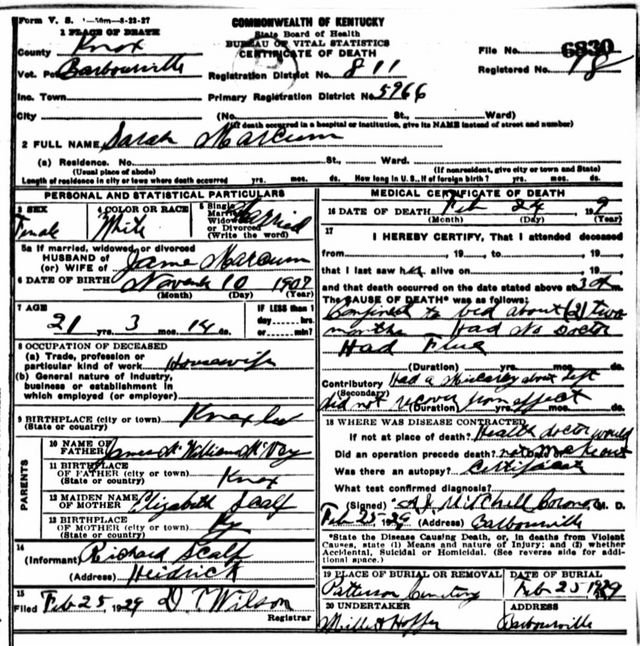 Form V. S. 1-50m-8-23-27
COMMONWEALTH OF KENTUCKY
State Board of Health
BUREAU OF VITAL STATISTICS
CERTIFICATE OF DEATH
1 PLACE OF DEATH
County Knox
File No. 6830
Vot. Pct. Barbourville
Registration District No. 811
Registered No. 18
Inc. Town
Primary Registration District No. 5966
City (No. St., Ward)
(If death occurred in a hospital or institution, give its NAME instead of street and number)
2 FULL NAME Sarah Marcum
(a) Residence. No. St., Ward.
(Usual place of abode) (If nonresident, give city or town and State)
Length of residence in city or town where death occurred yrs. mos. ds. How long in U. S., if of foreign birth? yrs. mos. ds.
PERSONAL AND STATISTICAL PARTICULARS
3 SEX Female
4 COLOR OR RACE White
5 Single Married Widowed or Divorced (Write the word) Married
5a If married, widowed or divorced
HUSBAND OF
(or) WIFE of Marcum
6 DATE OF BIRTH November 10 1907
(Month) (Day) (Year)
7 AGE IF LESS than 1
21 yrs. 3 mos. 14 ds. day, hrs. or min.?
8 OCCUPATION OF DECEASED
(a) Trade, profession or particular kind of work Housewife
(b) General nature of industry, business or establishment in which employed (or employer)
9 BIRTHPLACE (city or town) Knox
(State or country)
PARENTS
10 NAME OF FATHER James
11 BIRTHPLACE OF FATHER (city or town) Knox
(State or country)
12 MAIDEN NAME OF MOTHER Elizabeth Scalf
13 BIRTHPLACE OF MOTHER (city or town) Ky
(State or country)
14
(Informant) Richard Scalf
(Address) Heidrick
15
Filed Feb 25, 1929 D. T. Wilson
Registrar
MEDICAL CERTIFICATE OF DEATH
16 DATE OF DEATH Feb 24 19 9
(Month) (Day) (Year)
17
I HEREBY CERTIFY, That I attended deceased
from , 19 , to , 19
that I last saw her alive on , 19
and that death occurred on the date stated above at 3 m.
The CAUSE OF DEATH* was as follows:
Confined to bed about (2) two
months Had No Doctor
Had Flue
(Duration) yrs. mos. ds.
Contributory Had a about Sept
(Secondary)
did not recover from effect
(Duration) yrs. mos. ds.
18 WHERE WAS DISEASE CONTRACTED
If not at place of death? Health doctor would
Did an operation precede death? not
Was there an autopsy? Certificate
What test confirmed diagnosis?
(Signed) A J Mitchell Coroner M. D.
Feb 25 1929 (Address) Barbourville
*State the Disease Causing Death, or, in deaths from Violent
Causes, state (1) Means and nature of Injury; and (2) whether
Accidental, Suicidal or Homicidal. (See reverse side for addi-
tional space.)
19 PLACE OF BURIAL OR REMOVAL DATE OF BURIAL
Patterson Cemetery Feb 25 1929
20 UNDERTAKER ADDRESS
Barbourville